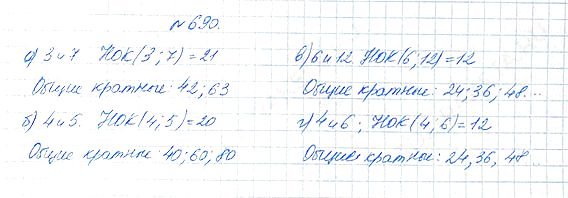 №690.
а) 3 и 7 НОК(3; 7) = 21
Общие кратные: 42; 63
б) 4 и 5. НОК(4; 5) = 20
Общие кратные: 40; 60; 80
в) 6 и 12. НОК(6; 12) = 12
Общие кратные: 24; 36; 48...
г) 4 и 6; НОК(4; 6) = 12
Общие кратные: 24, 36, 48...